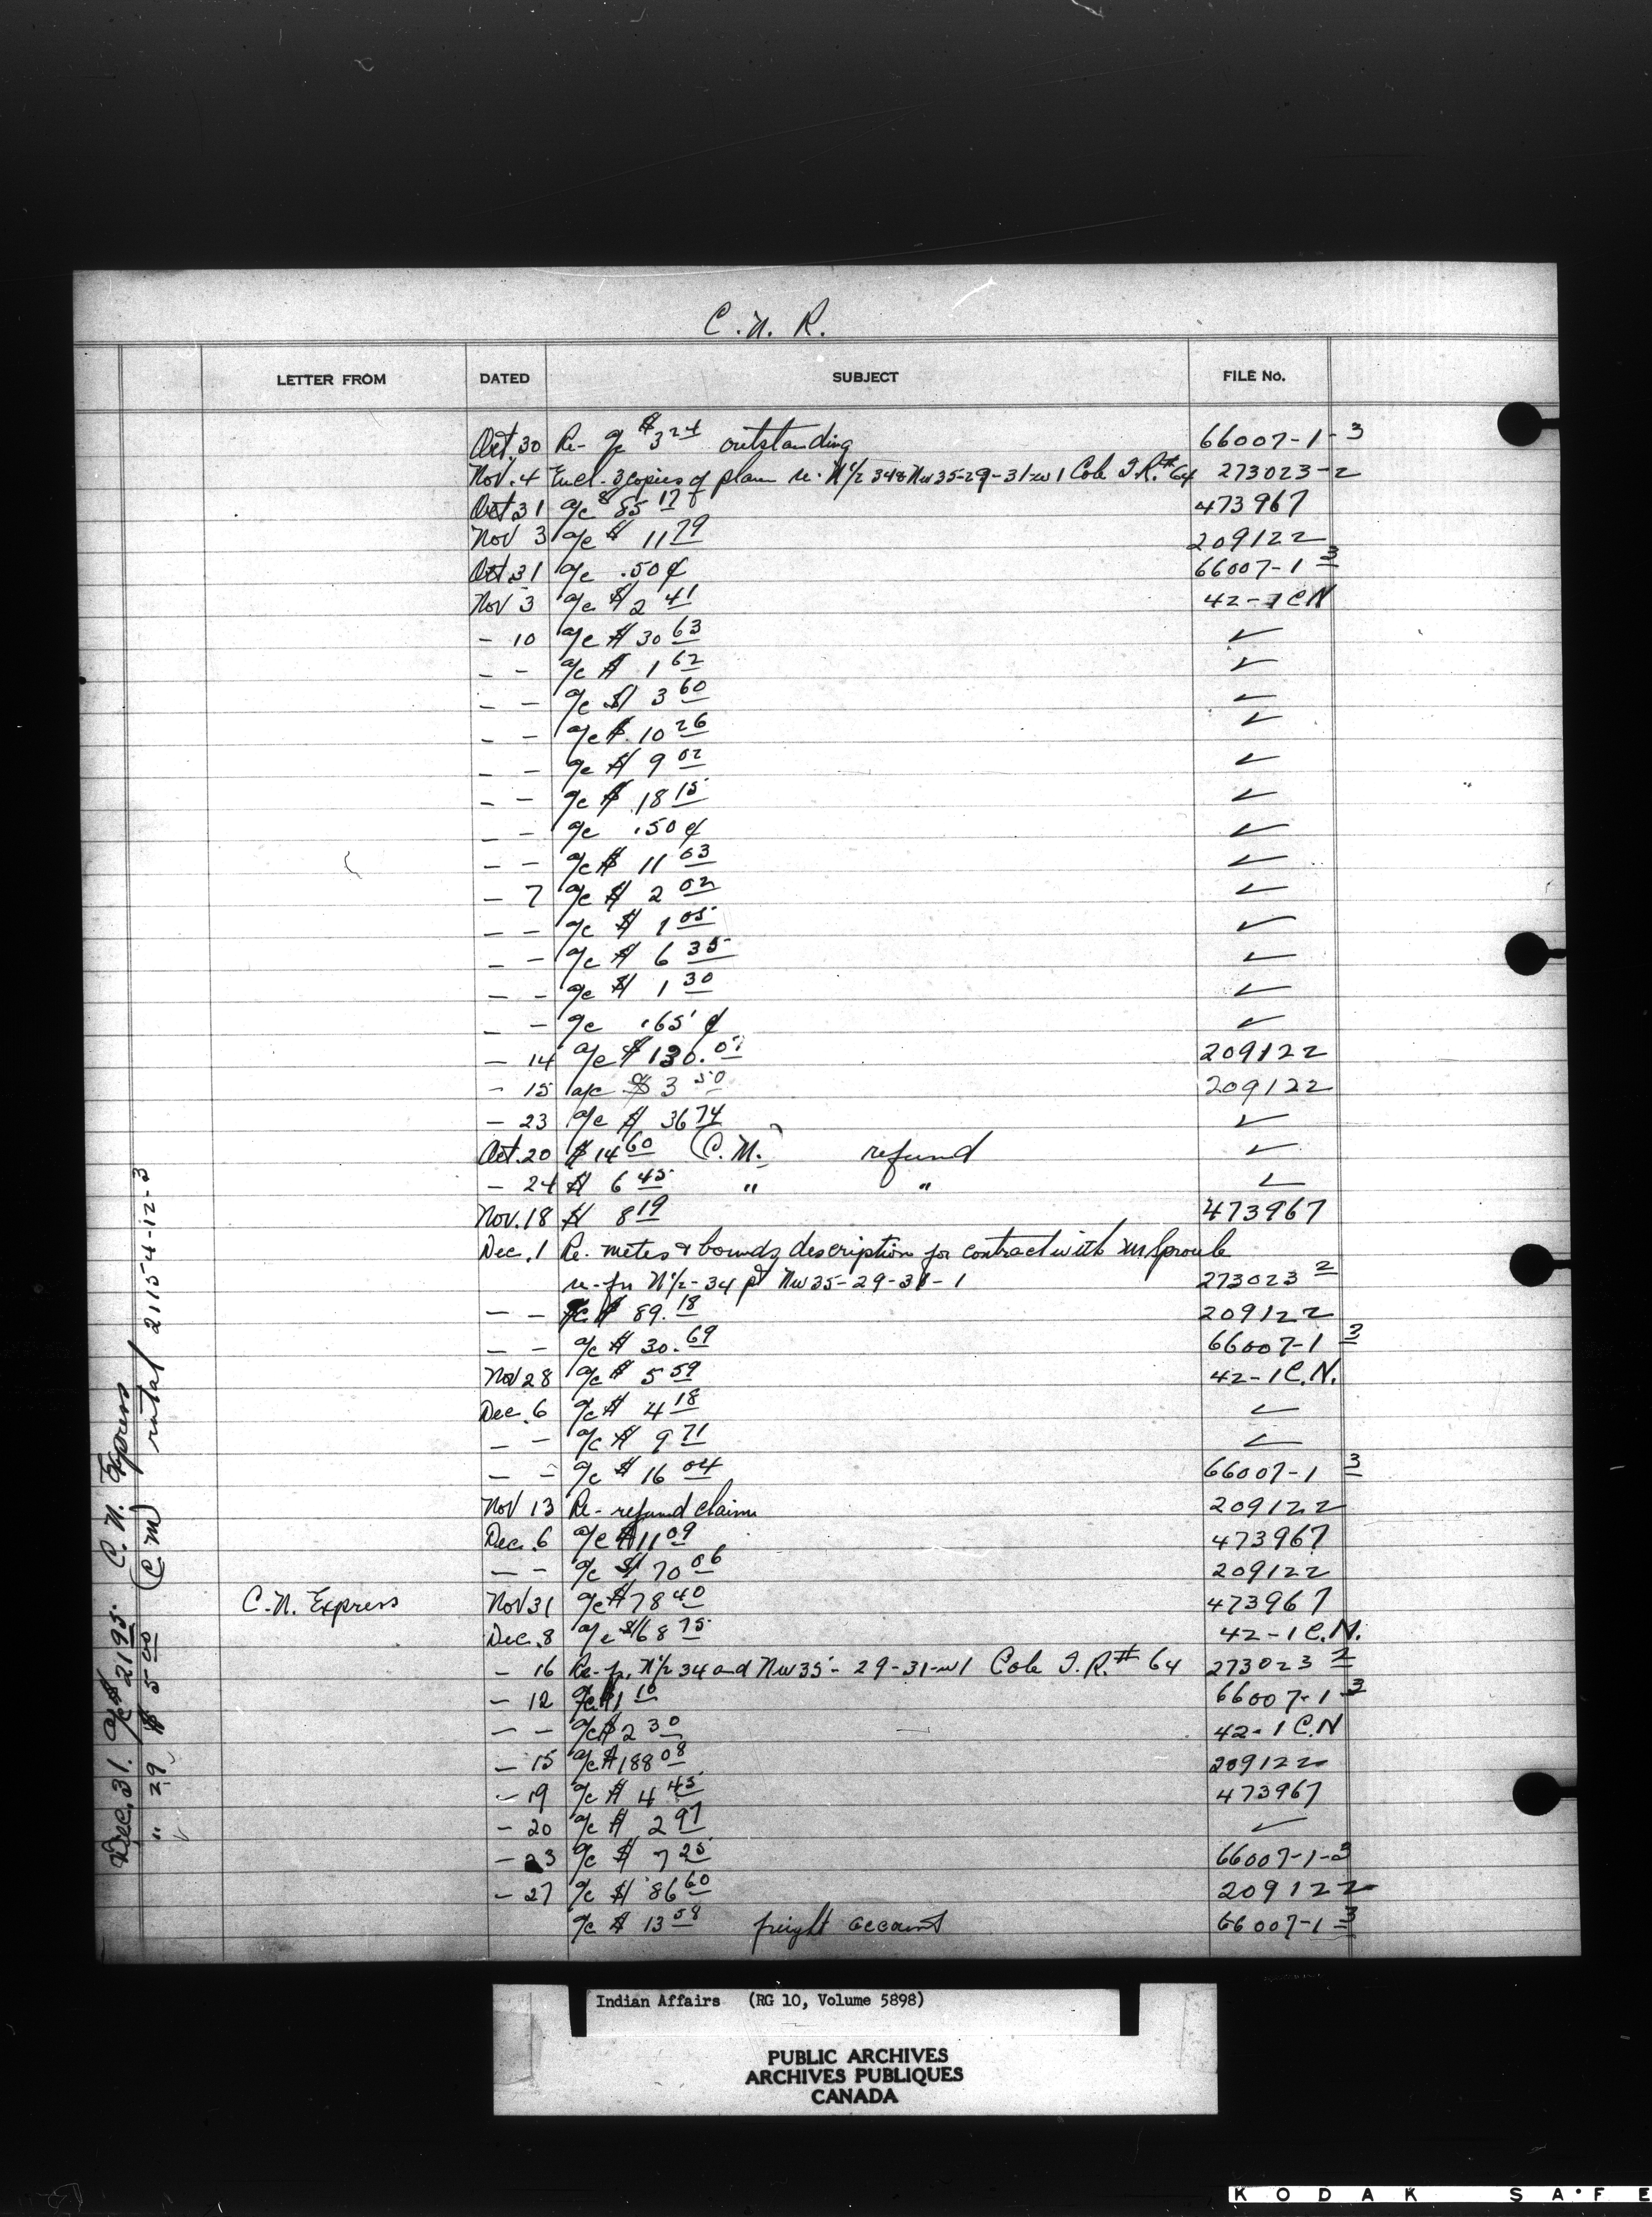 C. N. R.
LETTER FROM DATED SUBJECT FILE No.
Oct. 30 Re- a/c $3 24 outstanding 66007-1-3
Nov. 4 Encl. 3 copies of plan re. N 1/2 34 & Nw 35-29-31-w1 Cote I.R. # 64 273023-2
Oct 31 a/c $ 85 17 473967
Nov 3 a/c $ 11 79 209122
Oct. 31 a/c .50 ¢ 66007-1 3
Nov 3 a/c $ 2 41 42-1 CN
- 10 a/c $ 30 63 ✓
- - a/c $ 1 62 ✓
- - a/c $ 3 60 ✓
- - a/c $ 10 26 ✓
- - a/c $ 9 02 ✓
- - a/c $ 18 15 ✓
- - a/c .50 ¢ ✓
- - a/c $ 11 03 ✓
- 7 a/c $ 2 02 ✓
- - a/c $ 1 05 ✓
- - a/c $ 6 35 ✓
- - a/c $ 1 30 ✓
- - a/c .65 ¢ ✓
- 14 a/c $ 130. 209122
- 15 a/c $ 3 50 209122
- 23 a/c $ 36 74 ✓
Oct. 20 $ 14 60 (C.M.) refund ✓
- 24 $ 6 45 " " ✓
Nov. 18 $ 8 19 473967
Dec. 1 Re. metes & bounds description for contract with Mr Sproule
N 1/2-34 Nw 35-29-31-1 273023 2
- - a/c $ 89. 18 209122
- - a/c $ 30. 69 66007-1 3
Nov 28 a/c $ 5 59 42-1 C.N.
Dec. 6 a/c $ 4 18 ✓
- - a/c $ 9 71 ✓
- - a/c $ 16 04 66007-1 3
Nov 13 Re- refund claim 209122
Dec. 6 a/c $ 11 09 473967
- - a/c $ 70 06 209122
C.N. Express Nov 31 a/c $ 78 40 473967
Dec. 8 a/c $ 68 75 42-1 C.N.
- 16 Re- N 1/2 34 and Nw 35-29-31-w1 Cote I.R. # 64 273023 2
- 12 a/c $ 1 10 66007-1-3
- - a/c $ 2 30 42-1 C.N
- 15 a/c $ 188 08 209122
- 19 a/c $ 4 45 473967
- 20 a/c $ 2 97 ✓
- 23 a/c $ 7 25 66007-1-3
- 27 a/c $ 86 60 209122
a/c $ 13 58 freight account 66007-1 3
Dec. 31. a/c $ 21 95 C.N. Express
" 29 $ 5 00 (C.M) rental 21154-12-3
Indian Affairs (RG 10, Volume 5898)
PUBLIC ARCHIVES
ARCHIVES PUBLIQUES
CANADA
KODAK SAFE